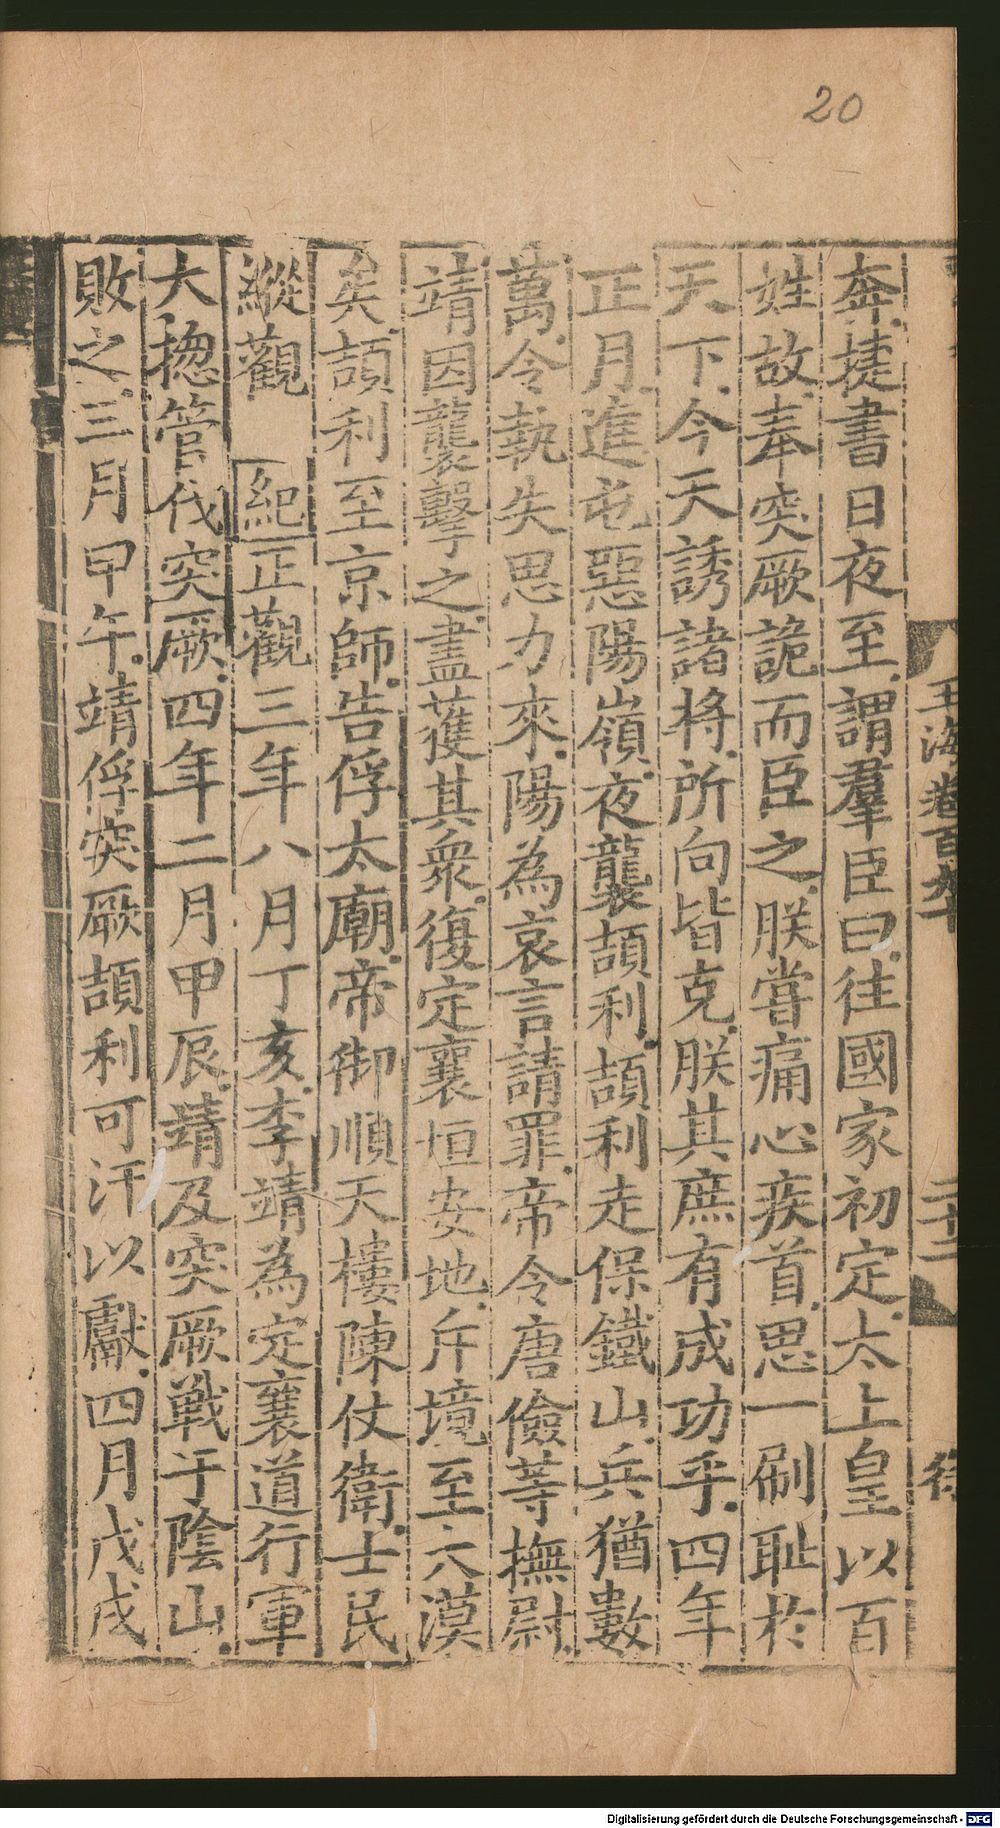 20
玉海卷百九十
二十二
奔捷書日夜至謂羣臣曰往國家初定太上皇以百
姓故奉突厥詭而臣之朕嘗痛心疾首思一刷恥於
天下今天誘諸將所向皆克朕其庶有成功乎四年
正月進屯惡陽嶺夜襲頡利頡利走保鐵山兵猶數
萬令執失思力來陽為哀言請罪帝令唐儉等撫尉
靖因襲擊之盡獲其衆復定襄垣安地斥境至六漠
矣頡利至京師告俘太廟帝御順天樓陳仗衛士民
縱觀 紀正觀三年八月丁亥李靖為定襄道行軍
大揔管伐突厥四年二月甲辰靖及突厥戰于陰山
敗之三月甲午靖俘突厥頡利可汗以獻四月戊戌
Digitalisierung gefördert durch die Deutsche Forschungsgemeinschaft - DFG